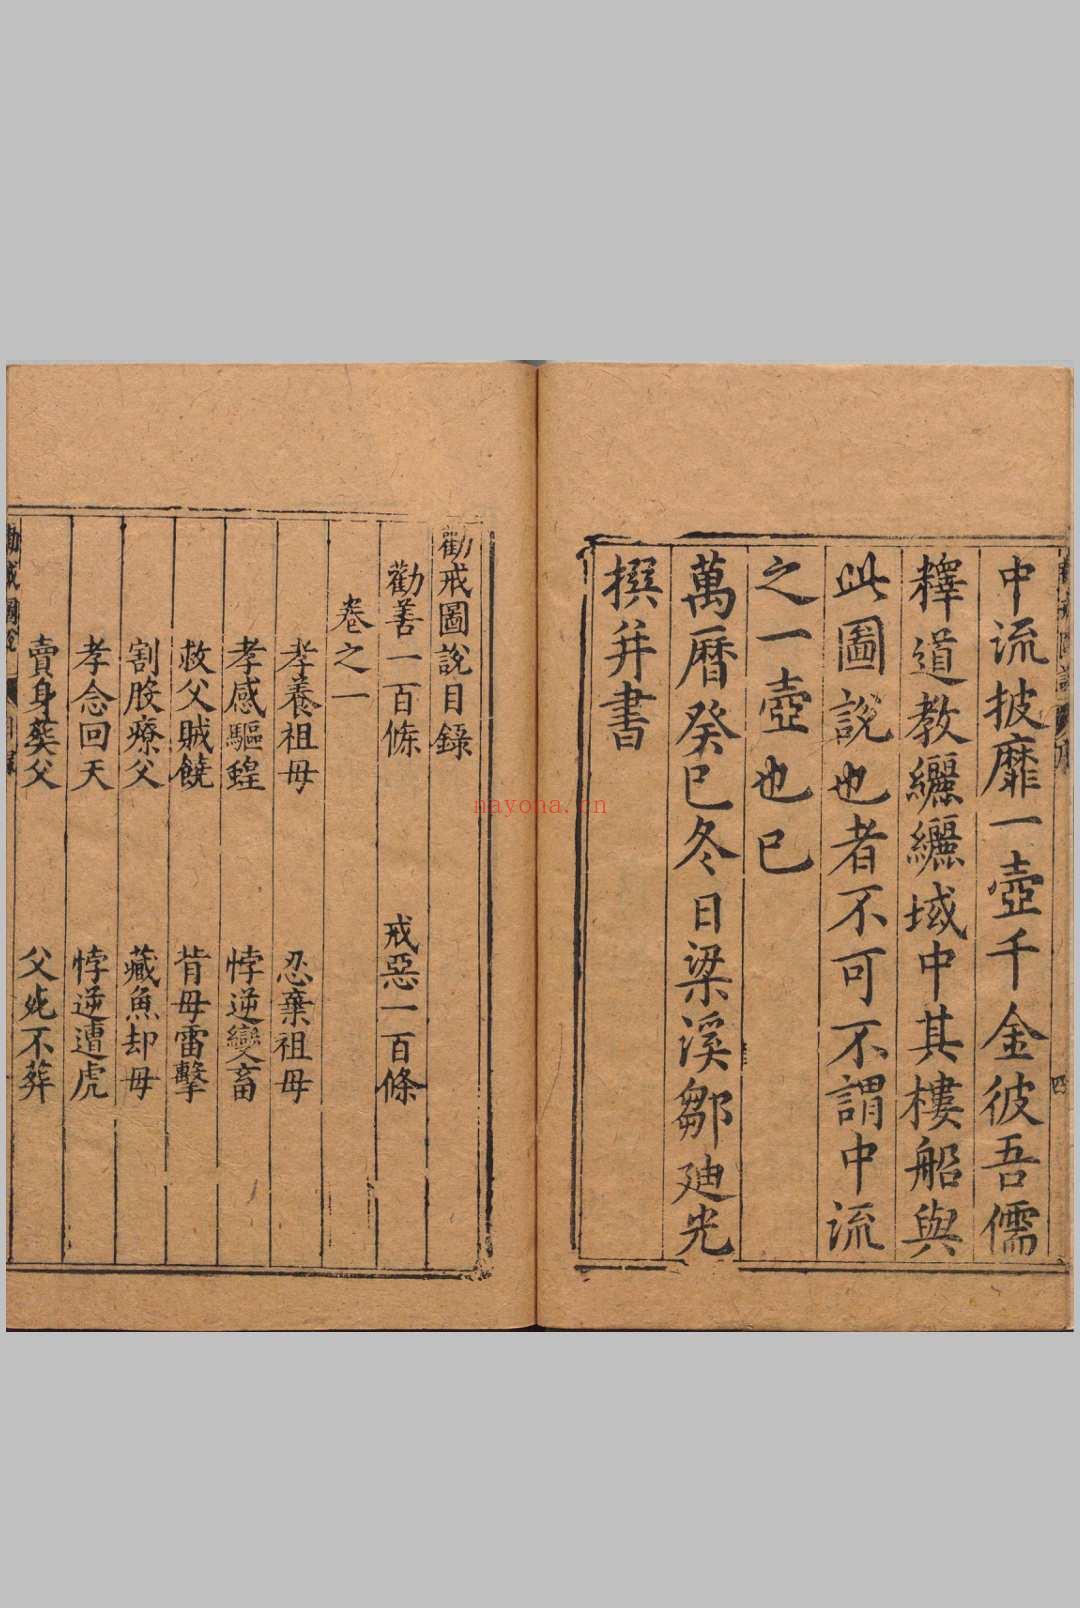 中流披靡一壺千金彼吾儒
釋道教纚纚域中其樓船與
此圖説也者不可不謂中流
之一壺也已
萬曆癸巳冬日梁溪鄒迪光
撰并書
四
勸戒圖說目錄
勸善一百條 戒惡一百條
卷之一
孝養祖母 忍棄祖母
孝感驅蝗 悖逆變畜
救父賊饒 背母雷擊
割股療父 藏魚却母
孝念回天 悖逆遭虎
賣身葬父 父死不葬
勸戒圖說
nayona.cn